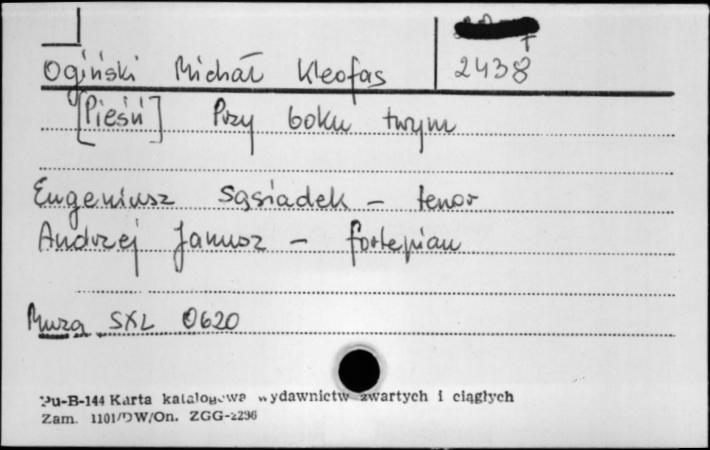 Ogiński Michał Kleofas
2438
[Pieśń] Przy boku twym
Eugeniusz Sąsiadek - tenor
Andrzej Janusz - fortepian
Muza SXL 0620
Pu-B-144 Karta katalogowa wydawnictw zwartych i ciągłych
Zam. 1101/DW/On. ZGG-2296